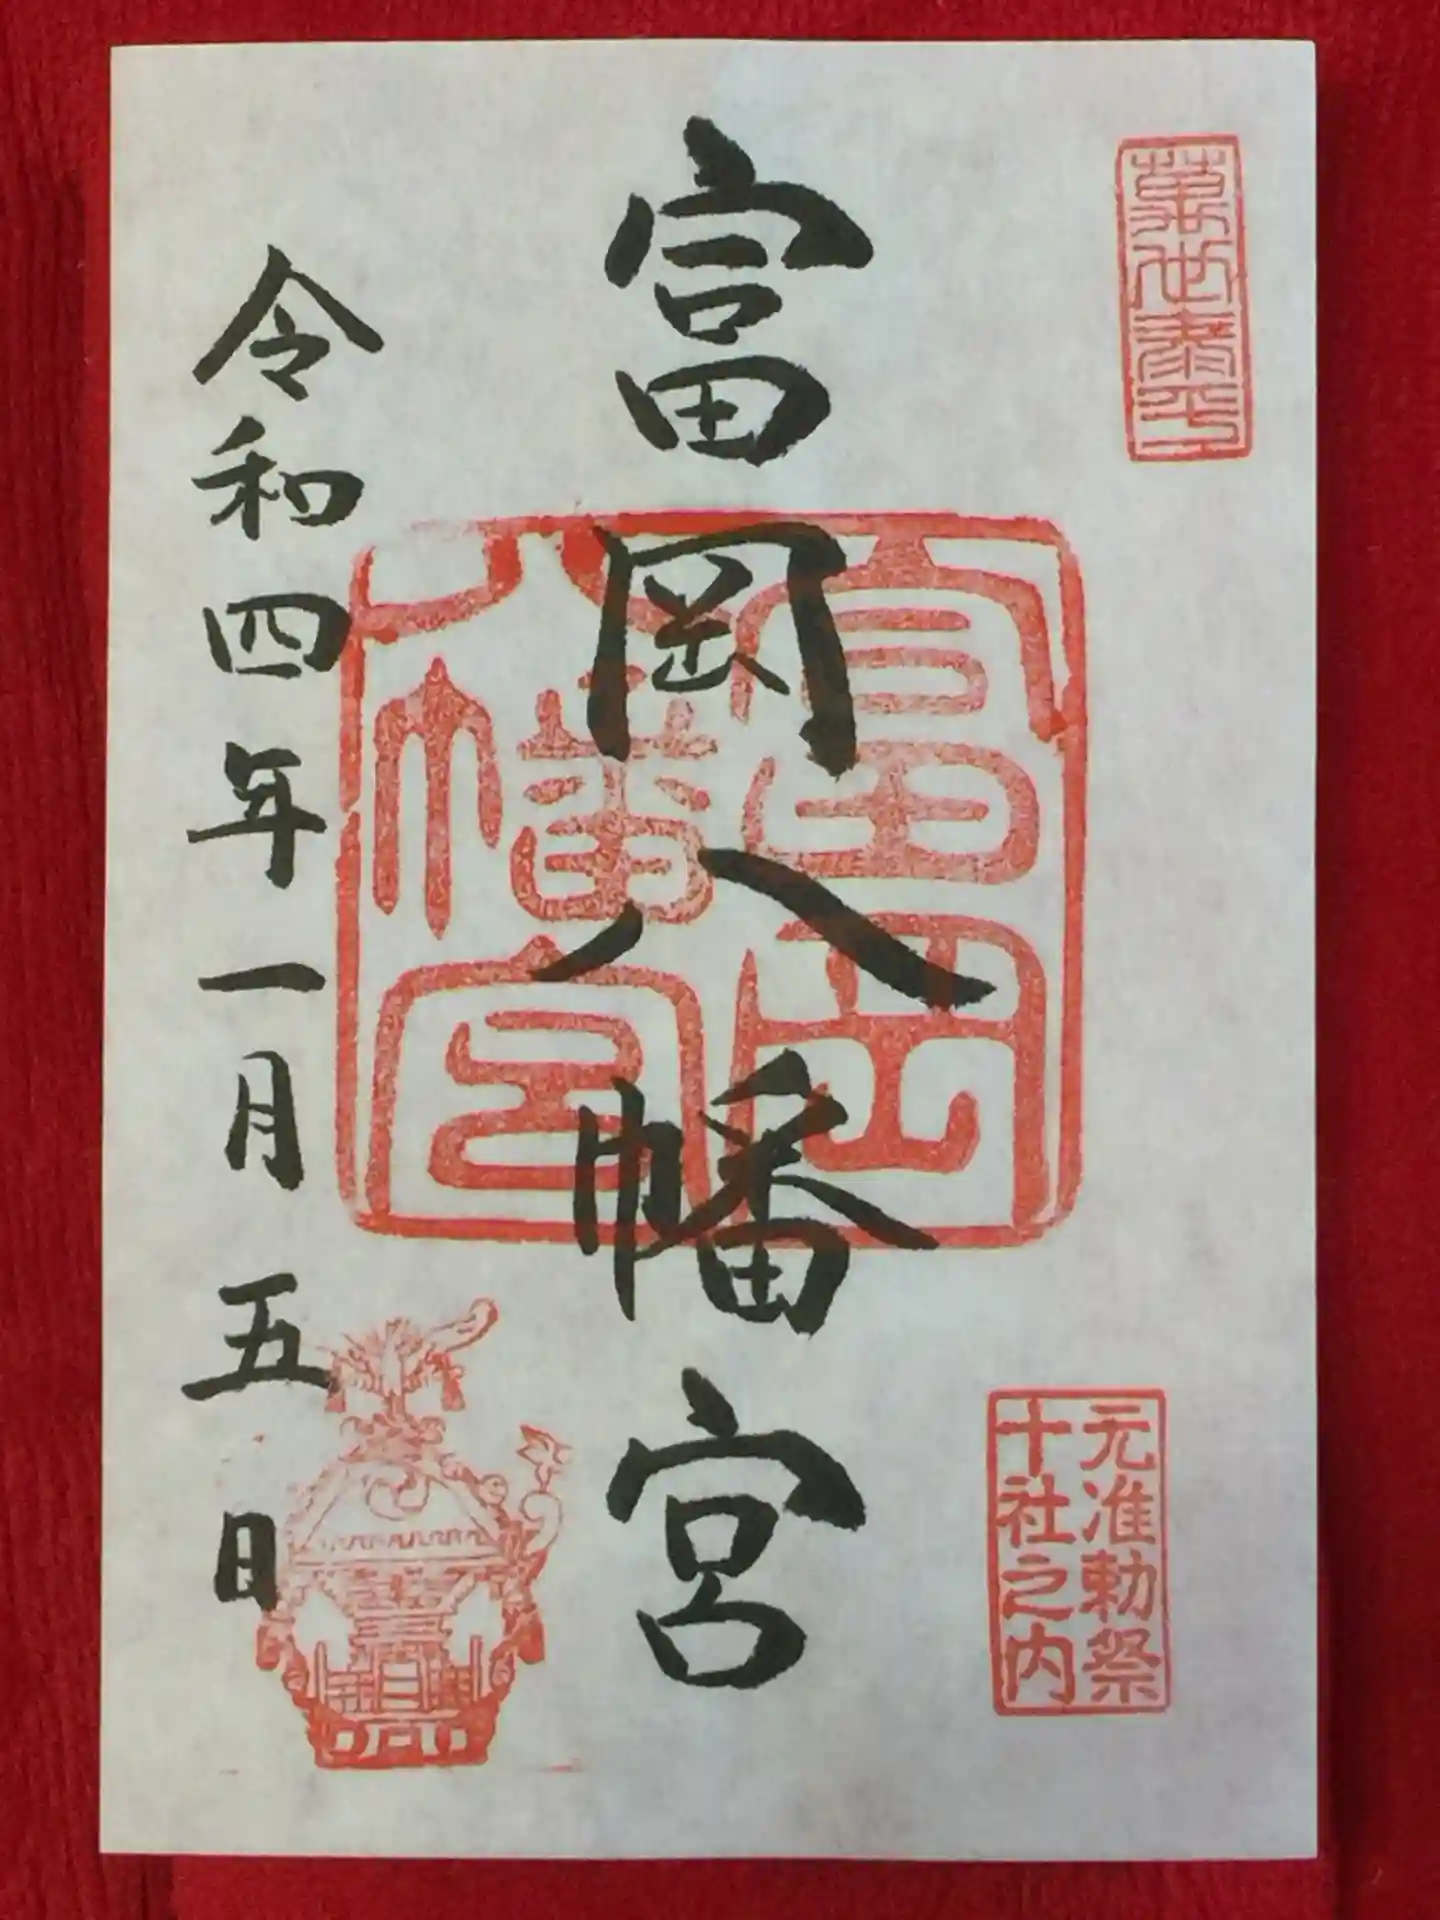 萬世泰平
元准勅祭
十社之内
富岡八幡宮
富岡
八幡宮
令和四年一月五日